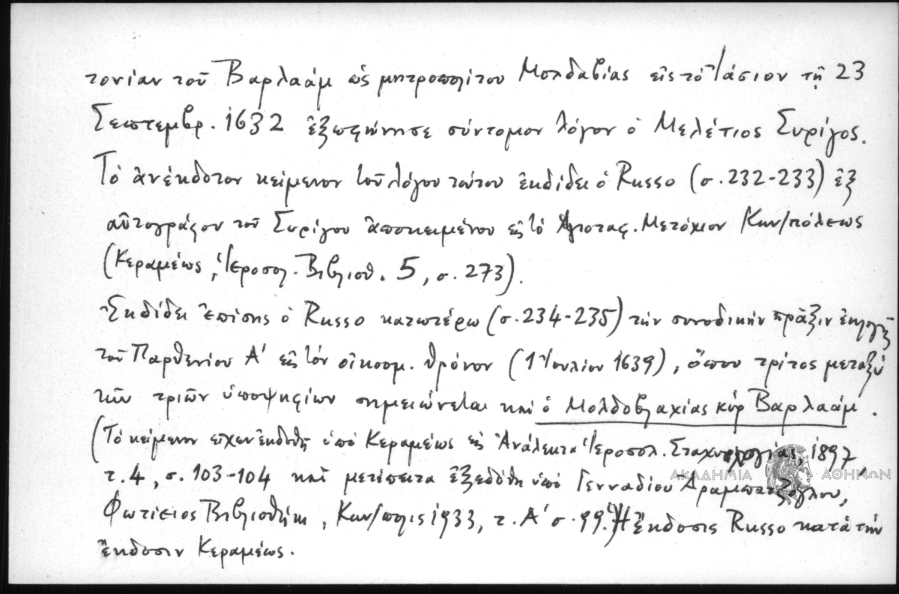 τονίαν τοῦ Βαρλαάμ ὡς μητροπολίτου Μολδαβίας εἰς τὸ Ἰάσιον τῇ 23
Σεπτεμβρ. 1632 ἐξεφώνησε σύντομον λόγον ὁ Μελέτιος Συρίγος.
Τὸ ἀνέκδοτον κείμενον τοῦ λόγου τούτου ἐκδίδει ὁ Russo (σ. 232-233) ἐξ
αὐτογράφου τοῦ Συρίγου ἀποκειμένου εἰς τὸ Ἁγιοταφ. Μετόχιον Κων/πόλεως
(Κεραμέως, Ἱεροσολ. Βιβλιοθ. 5, σ. 273).
Ἐκδίδει ἐπίσης ὁ Russo κατωτέρω (σ. 234-235) τὴν συνοδικὴν πρᾶξιν ἐκλογῆς
τοῦ Παρθενίου Α' εἰς τὸν οἰκουμ. θρόνον (1 Ἰουλίου 1639), ὅπου τρίτος μεταξὺ
τῶν τριῶν ὑποψηφίων σημειώνεται καὶ ὁ Μολδοβλαχίας κύρ Βαρλαάμ.
(Τὸ κείμενον εἶχεν ἐκδοθῆ ὑπὸ Κεραμέως εἰς Ἀνάλεκτα Ἱεροσολ. Σταχυολογίας, 1897
τ. 4, σ. 103-104 καὶ μετέπειτα ἐξεδόθη ὑπὸ Γενναδίου Ἀραμπατζόγλου,
Φωτίειος Βιβλιοθήκη, Κων/πολις 1933, τ. Α' σ. 99.) Ἡ ἔκδοσις Russo κατὰ τὴν
ἔκδοσιν Κεραμέως.
ΑΚΑΔΗΜΙΑ ΑΘΗΝΩΝ